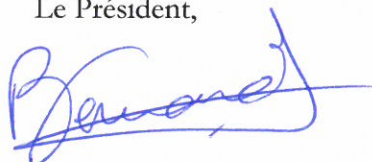 Le Président,